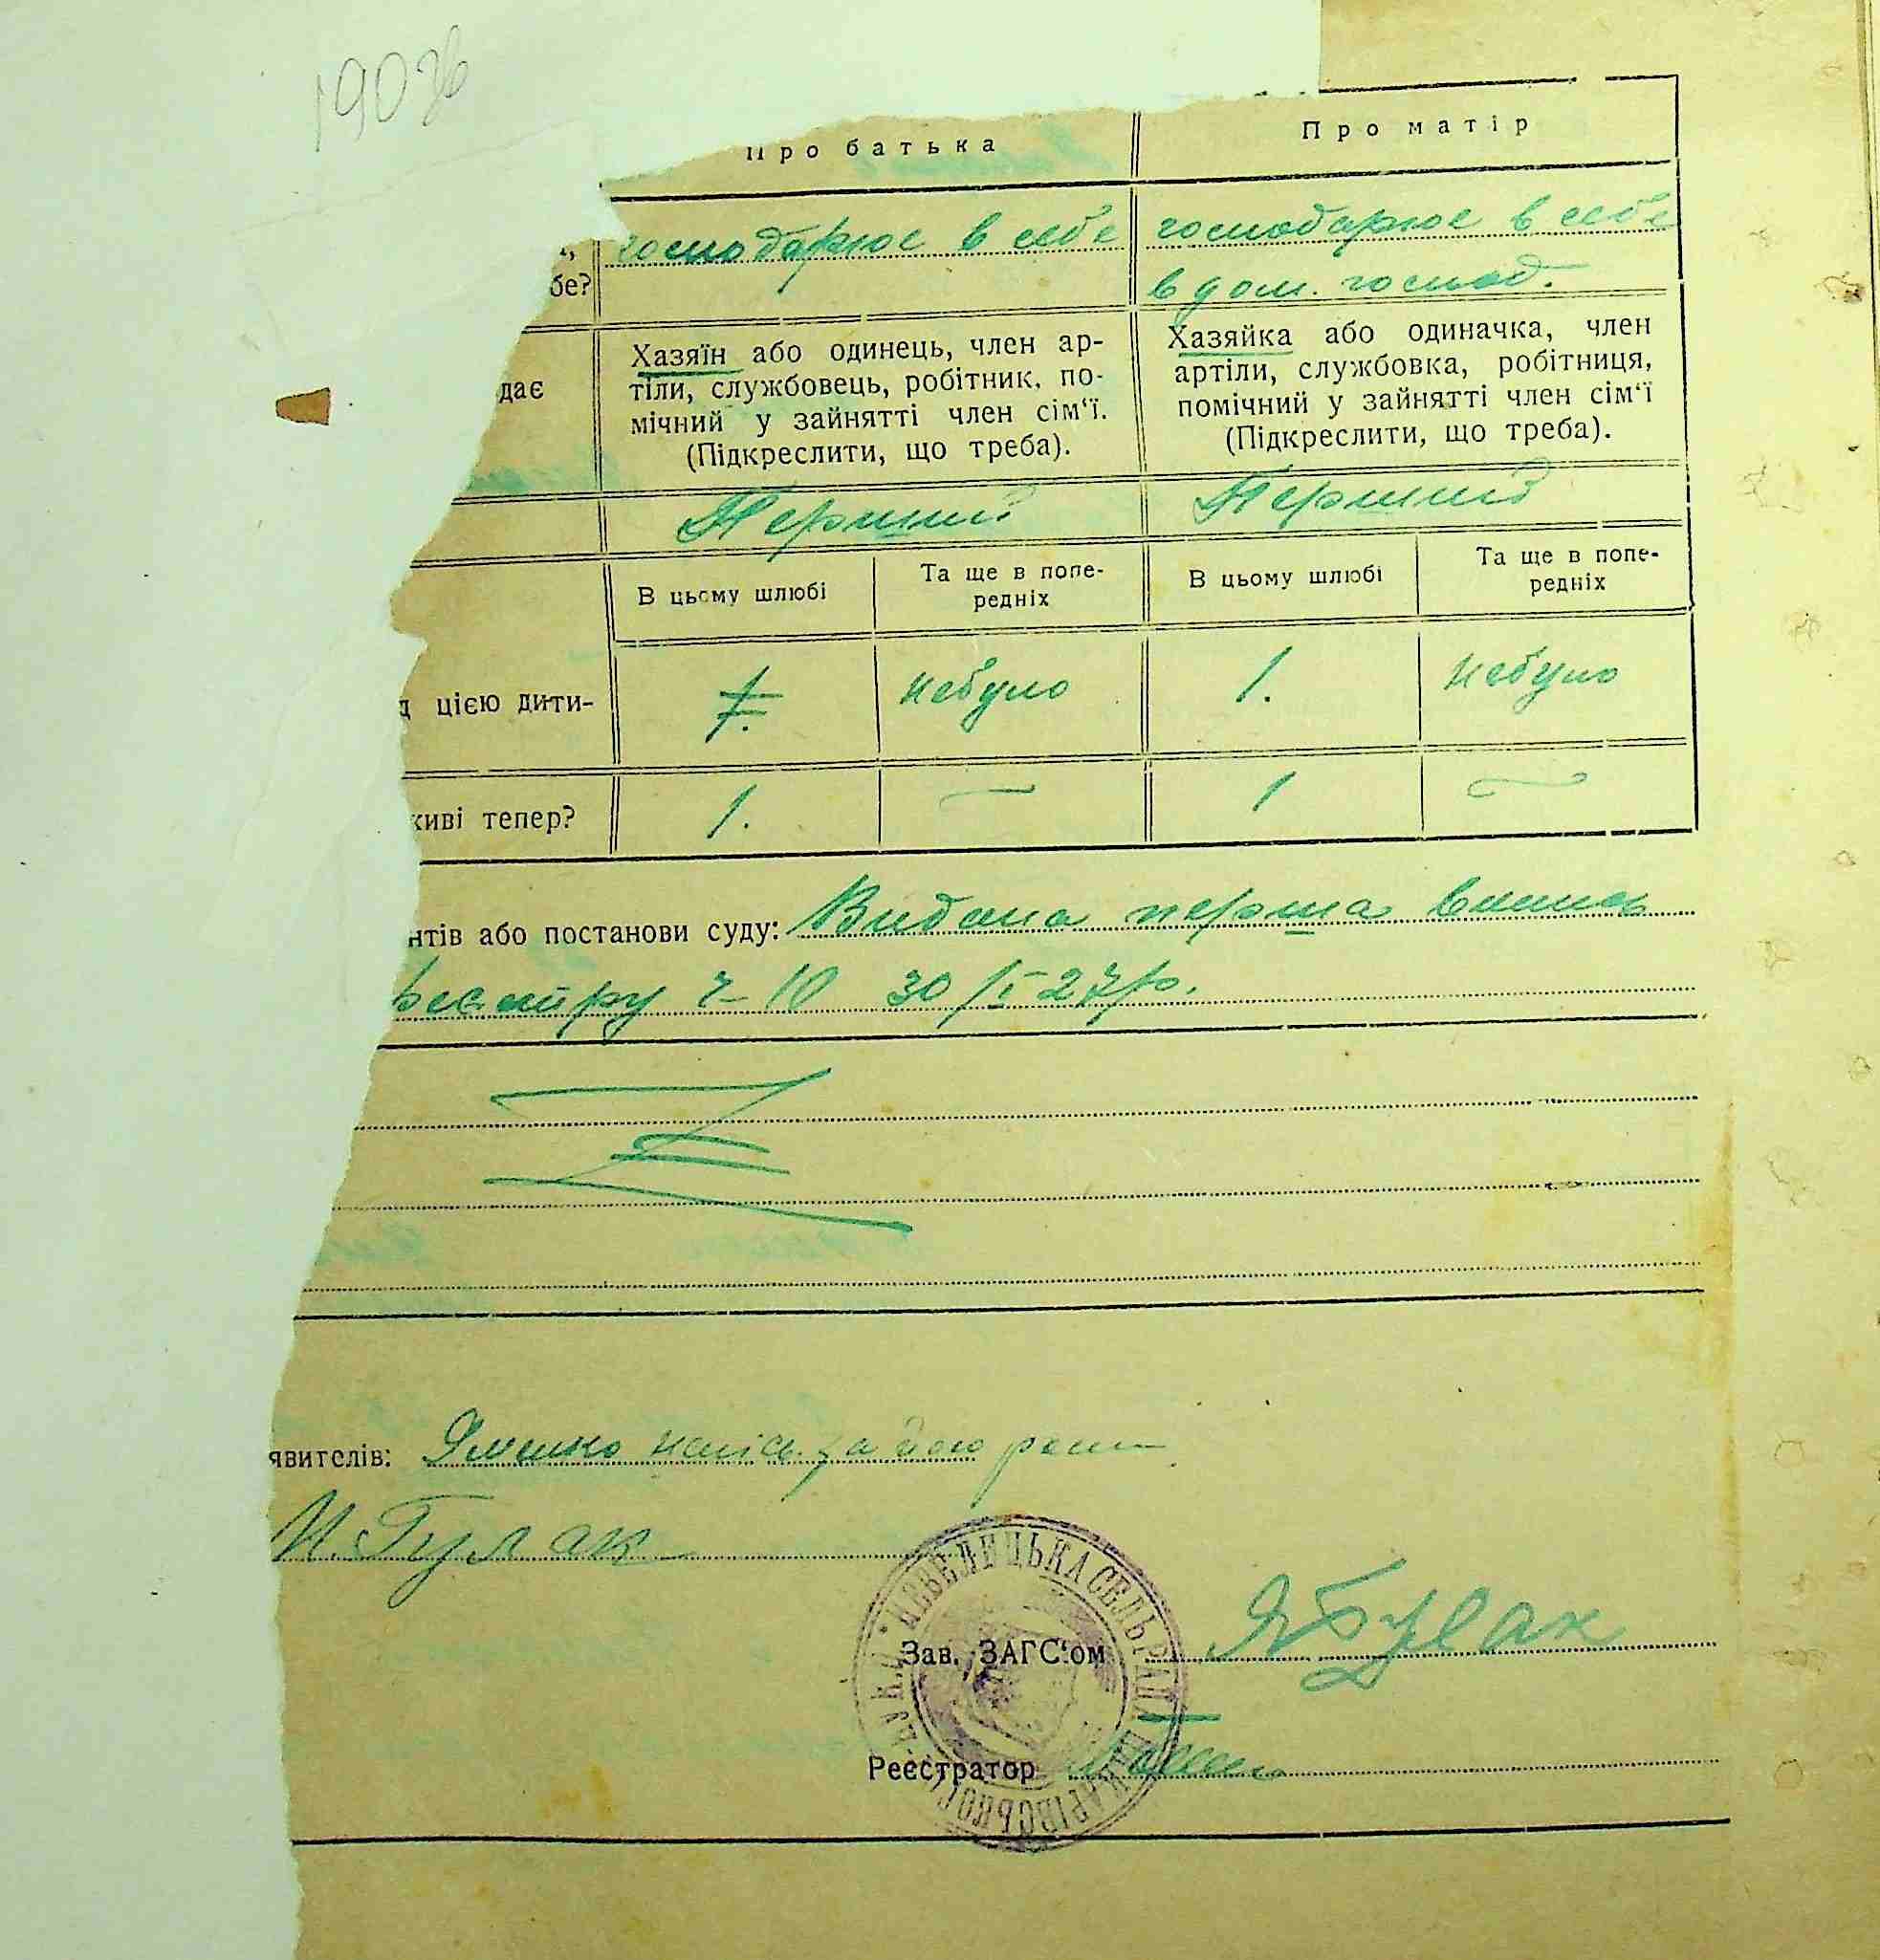 190
Про батька
Про матір
господарює в себе
господарює в себе
бе?
в дом. господ.
дає
Хазяїн або одинець, член ар-
тіли, службовець, робітник, по-
мічний у зайнятті член сім'ї.
(Підкреслити, що треба).
Хазяйка або одиначка, член
артіли, службовка, робітниця,
помічний у зайнятті член сім'ї
(Підкреслити, що треба).
Перший
Перший
В цьому шлюбі
Та ще в попе-
редніх
В цьому шлюбі
Та ще в попе-
редніх
д цією дити-
1.
небуло
1.
небуло
живі тепер?
1.
—
1
—
нтів або постанови суду: Видана перша випись
реєстру ч 10 30/I 27 р.
явителів: Ялишко неписьм. за його розп
И. Гулак
Зав. ЗАГС'ом
Реєстратор
СЕЛЬРАДА